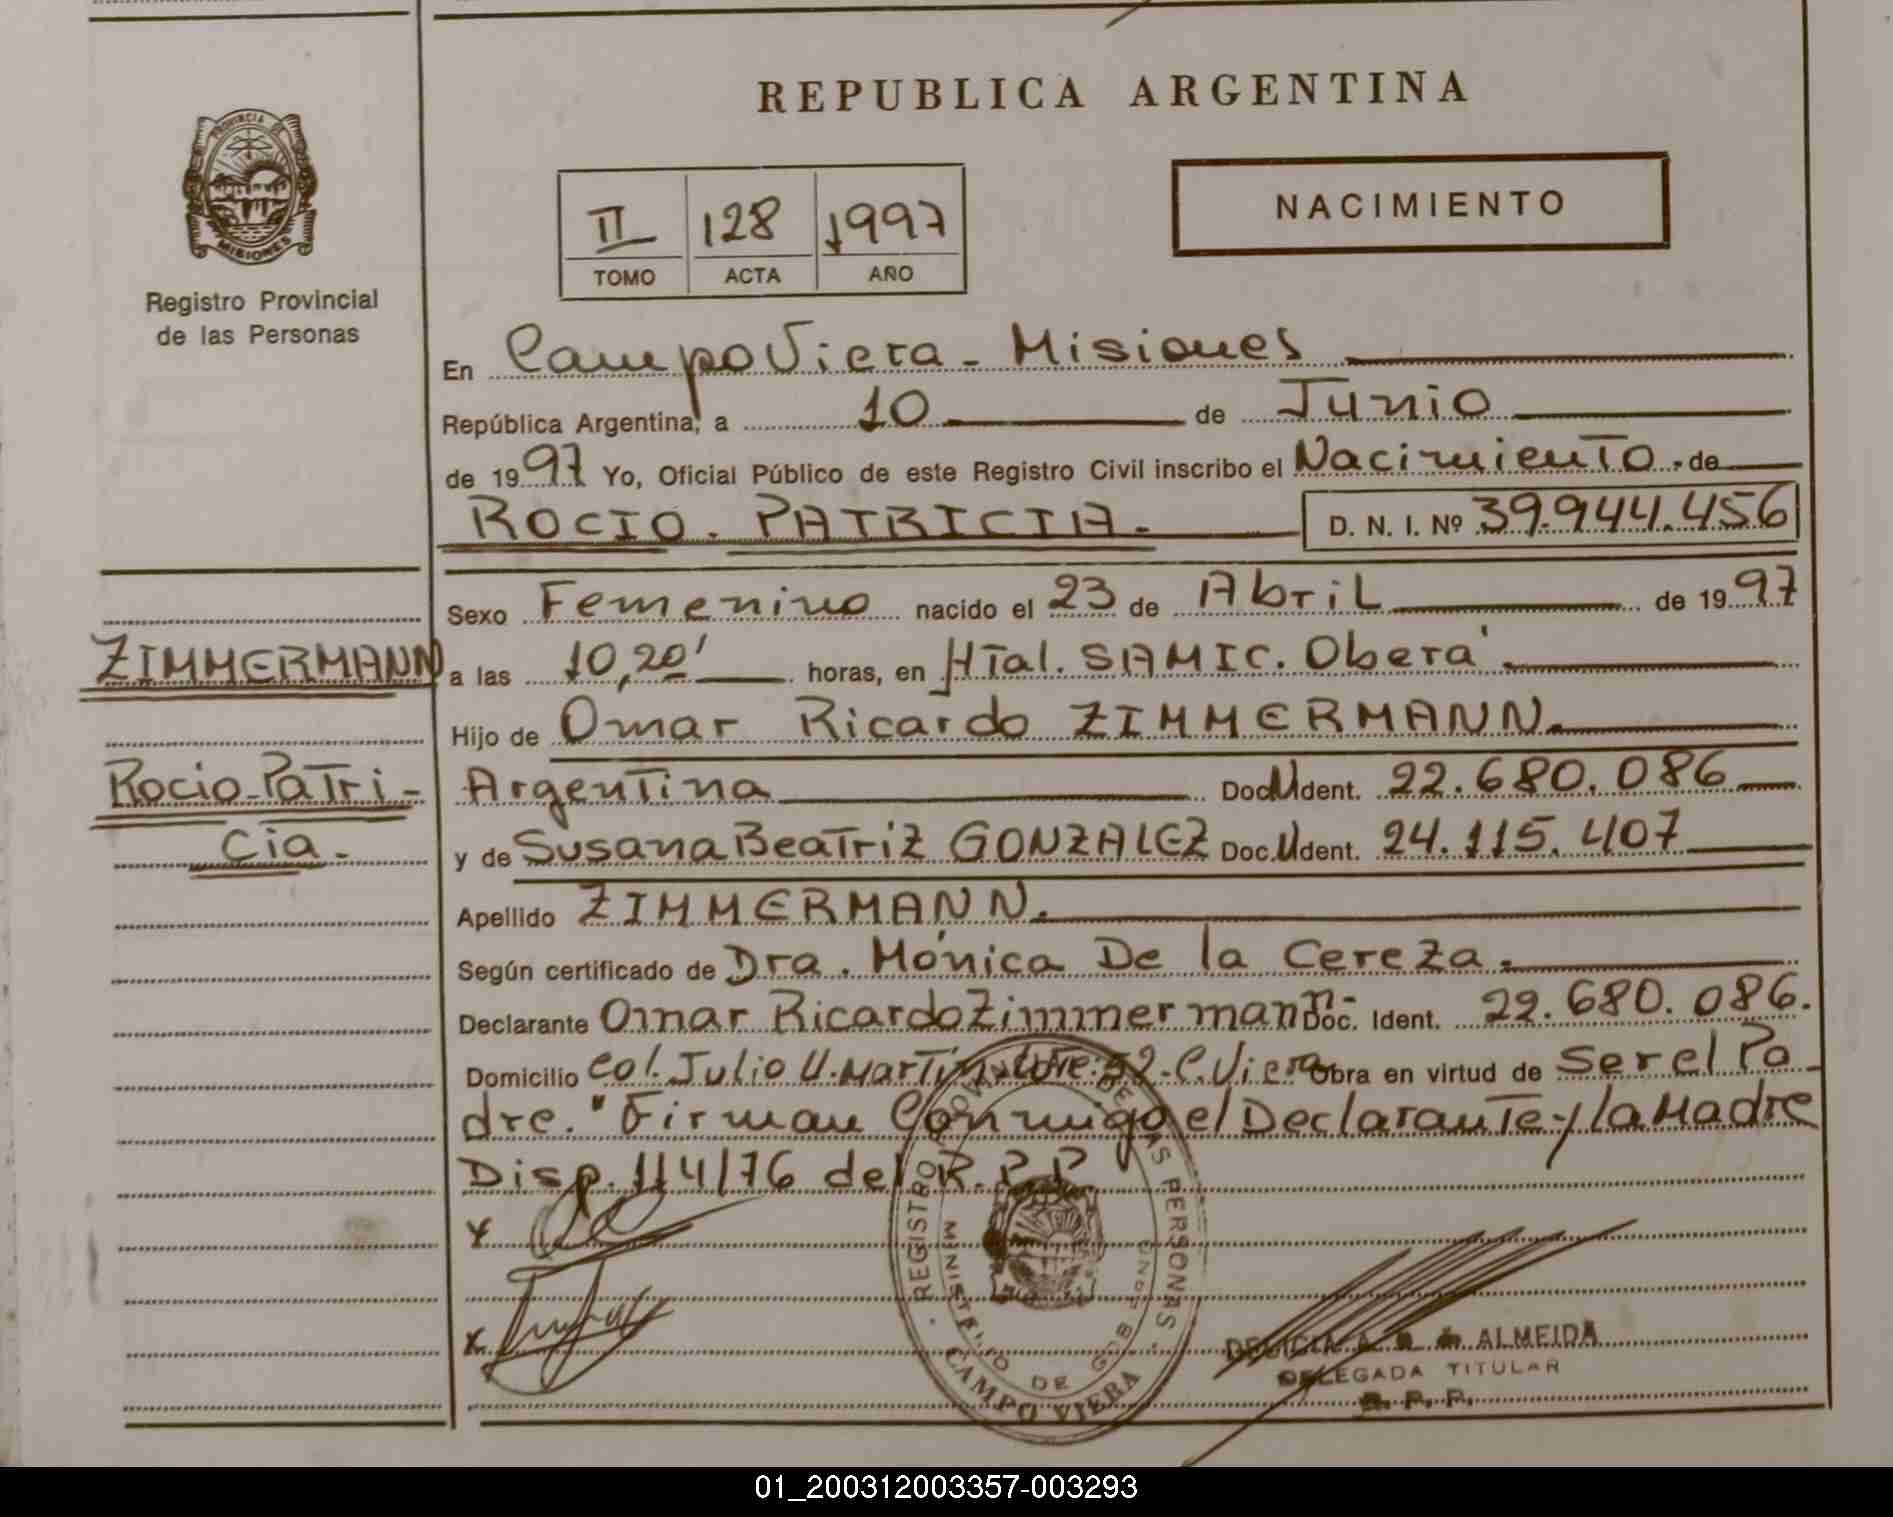 REPUBLICA ARGENTINA
PROVINCIA DE
MISIONES
Registro Provincial
de las Personas
II 128 1997
TOMO ACTA AÑO
NACIMIENTO
En Campo Viera - Misiones
República Argentina, a 10 de Junio
de 1997 Yo, Oficial Público de este Registro Civil inscribo el Nacimiento - de
ROCIO - PATRICIA - D. N. I. Nº 39.944.456
Sexo Femenino nacido el 23 de Abril de 1997
ZIMMERMANN
a las 10,20' horas, en HTal. SAMIC. Oberá.
Hijo de Omar Ricardo ZIMMERMANN.
Rocio-Patri-
cia.
Argentina Doc. Ident. 22.680.086
y de Susana Beatriz GONZALEZ Doc. Ident. 24.115.407
Apellido ZIMMERMANN.
Según certificado de Dra. Mónica De la Cereza.
Declarante Omar Ricardo Zimmermann- Doc. Ident. 22.680.086.
Domicilio Col. Julio U. Martin-Lote: 52-C. Viera Obra en virtud de Ser el Pa-
dre. "Firman Conmigo el Declarante y la Madre
Disp. 114/76 del R.P.P.
x
x
REGISTRO DE LAS PERSONAS
MINISTERIO DE GOB
CAMPO VIERA
ALMEIDA
DELEGADA TITULAR
R. P. P.
01_200312003357-003293